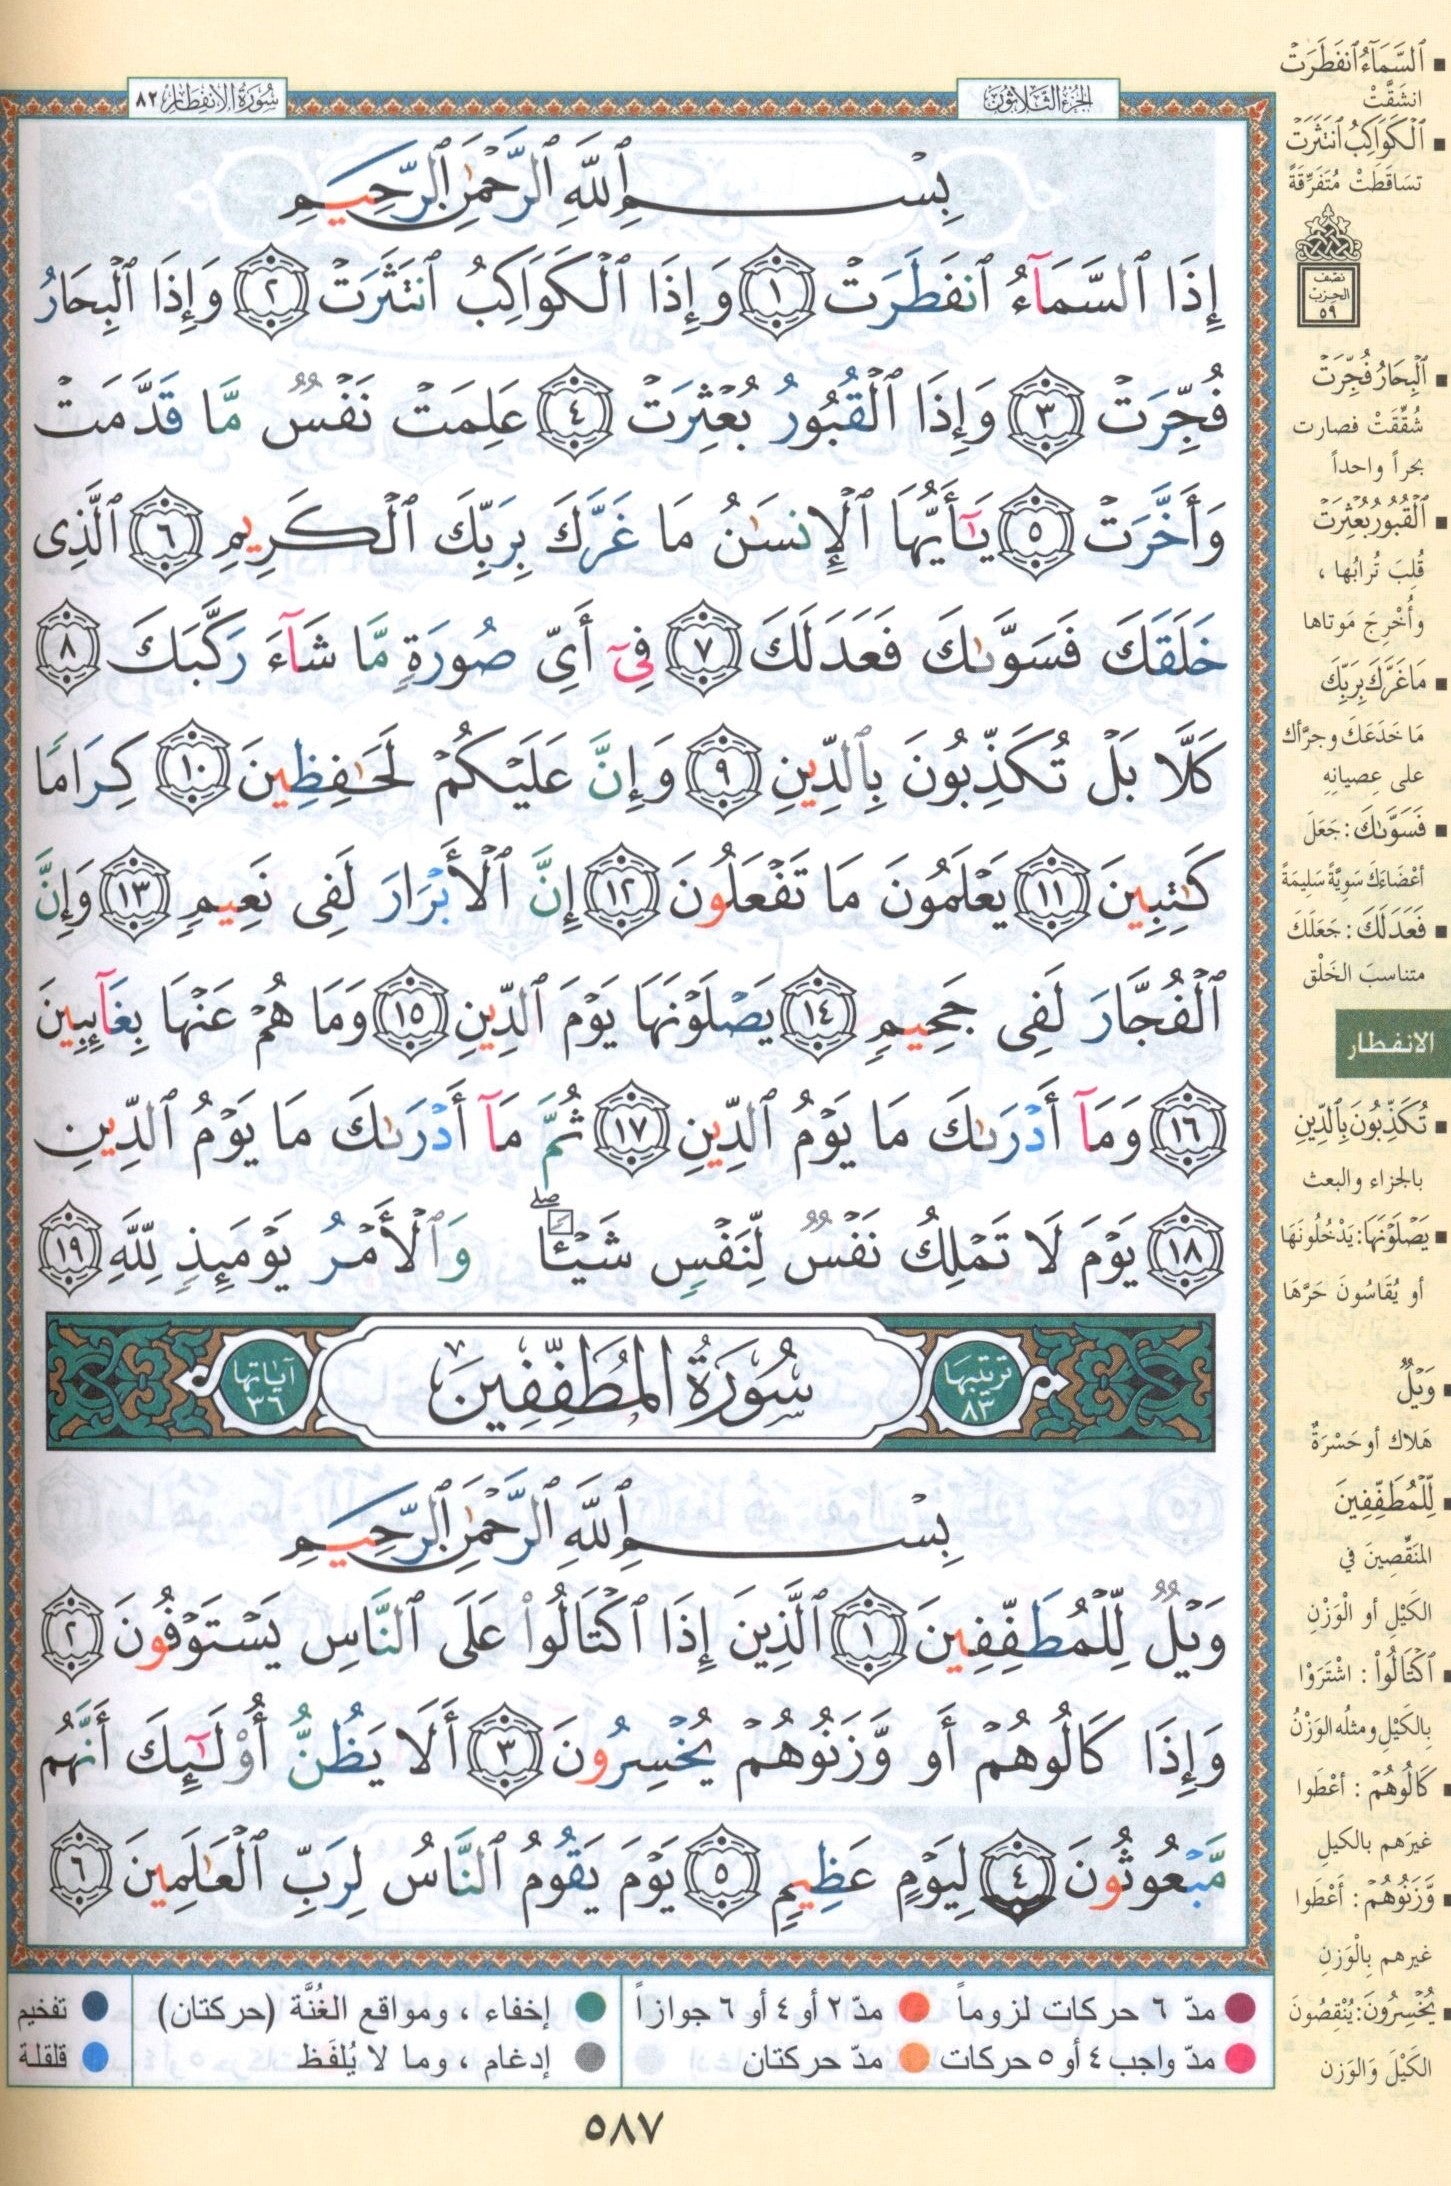 الجزء الثلاثون
سورة الانفطار ٨٢
بِسْمِ ٱللَّهِ ٱلرَّحْمَٰنِ ٱلرَّحِيمِ
إِذَا ٱلسَّمَآءُ ٱنفَطَرَتْ ١ وَإِذَا ٱلْكَوَاكِبُ ٱنتَثَرَتْ ٢ وَإِذَا ٱلْبِحَارُ
فُجِّرَتْ ٣ وَإِذَا ٱلْقُبُورُ بُعْثِرَتْ ٤ عَلِمَتْ نَفْسٌ مَّا قَدَّمَتْ
وَأَخَّرَتْ ٥ يَٰٓأَيُّهَا ٱلْإِنسَٰنُ مَا غَرَّكَ بِرَبِّكَ ٱلْكَرِيمِ ٦ ٱلَّذِى
خَلَقَكَ فَسَوَّىٰكَ فَعَدَلَكَ ٧ فِىٓ أَىِّ صُورَةٍ مَّا شَآءَ رَكَّبَكَ ٨
كَلَّا بَلْ تُكَذِّبُونَ بِٱلدِّينِ ٩ وَإِنَّ عَلَيْكُمْ لَحَٰفِظِينَ ١٠ كِرَامًا
كَٰتِبِينَ ١١ يَعْلَمُونَ مَا تَفْعَلُونَ ١٢ إِنَّ ٱلْأَبْرَارَ لَفِى نَعِيمٍ ١٣ وَإِنَّ
ٱلْفُجَّارَ لَفِى جَحِيمٍ ١٤ يَصْلَوْنَهَا يَوْمَ ٱلدِّينِ ١٥ وَمَا هُمْ عَنْهَا بِغَآئِبِينَ
١٦ وَمَآ أَدْرَىٰكَ مَا يَوْمُ ٱلدِّينِ ١٧ ثُمَّ مَآ أَدْرَىٰكَ مَا يَوْمُ ٱلدِّينِ
١٨ يَوْمَ لَا تَمْلِكُ نَفْسٌ لِّنَفْسٍ شَيْـًٔا ۖ وَٱلْأَمْرُ يَوْمَئِذٍ لِّلَّهِ ١٩
ترتيبها ٨٣
سُورَةُ المُطَفِّفِينَ
آياتها ٣٦
بِسْمِ ٱللَّهِ ٱلرَّحْمَٰنِ ٱلرَّحِيمِ
وَيْلٌ لِّلْمُطَفِّفِينَ ١ ٱلَّذِينَ إِذَا ٱكْتَالُوا۟ عَلَى ٱلنَّاسِ يَسْتَوْفُونَ ٢
وَإِذَا كَالُوهُمْ أَو وَّزَنُوهُمْ يُخْسِرُونَ ٣ أَلَا يَظُنُّ أُو۟لَٰٓئِكَ أَنَّهُم
مَّبْعُوثُونَ ٤ لِيَوْمٍ عَظِيمٍ ٥ يَوْمَ يَقُومُ ٱلنَّاسُ لِرَبِّ ٱلْعَٰلَمِينَ ٦
ٱلسَّمَآءُ ٱنفَطَرَتْ
انشَقَّتْ
ٱلْكَوَاكِبُ ٱنتَثَرَتْ
تساقَطَتْ مُتَفَرِّقَةً
نصف
الحزب
٥٩
ٱلْبِحَارُ فُجِّرَتْ
شُقِّقَتْ فصارت
بحراً واحداً
ٱلْقُبُورُ بُعْثِرَتْ
قُلِبَ تُرابُها ،
وأُخْرِجَ مَوتاها
مَا غَرَّكَ بِرَبِّكَ
مَا خَدَعَكَ وجرَّأك
على عِصيانِهِ
فَسَوَّىٰكَ : جَعَلَ
أعْضَاءَكَ سَوِيَّةً سَلِيمَةً
فَعَدَلَكَ : جَعَلَكَ
متناسبَ الخَلْق
الانفطار
تُكَذِّبُونَ بِٱلدِّينِ
بالجزاء والبعث
يَصْلَوْنَهَا : يَدْخُلُونَهَا
أو يُقَاسُونَ حَرَّهَا
وَيْلٌ
هَلاك أو حَسْرَةٌ
لِّلْمُطَفِّفِينَ
المنَقِّصِينَ في
الكَيْلِ أو الْوَزْنِ
ٱكْتَالُوا۟ : اشْتَرَوْا
بِالكَيْلِ ومثلُه الوَزْنُ
كَالُوهُمْ : أعْطَوا
غيرَهم بالكيلِ
وَّزَنُوهُمْ : أَعْطَوا
غيرهم بِالْوَزنِ
يُخْسِرُونَ : يُنْقِصُونَ
الكَيْلَ وَالوَزن
مدّ ٦ حركات لزوماً مدّ ٢ أو ٤ أو ٦ جوازاً
مدّ واجب ٤ أو ٥ حركات مدّ حركتان
إخفاء ، ومواقع الغُنَّة (حركتان)
إدغام ، وما لا يُلفَظ
تفخيم
قلقلة
٥٨٧